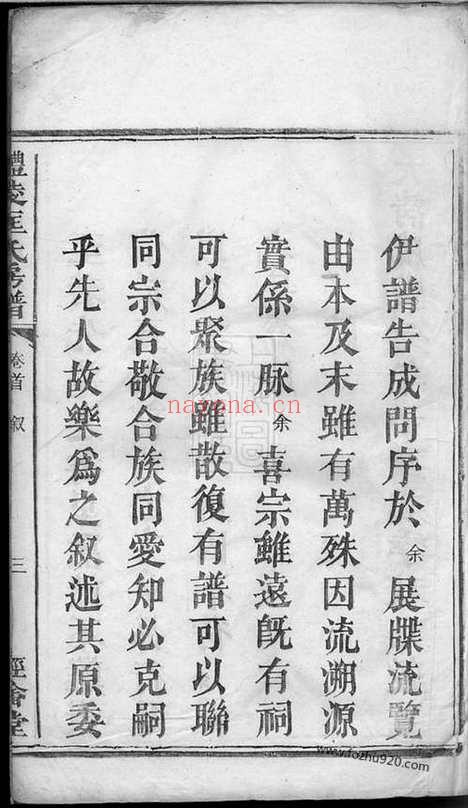 伊譜告成問序於余展牒流覽
由本及末雖有萬殊因流溯源
實係一脉余喜宗雖遠既有祠
可以聚族雖散復有譜可以聯
同宗合敬合族同愛知必克嗣
乎先人故樂爲之叙述其原委
醴陵匡氏房譜
卷首 叙
三
經畬堂
nayona.cn
www.fozhu920.com